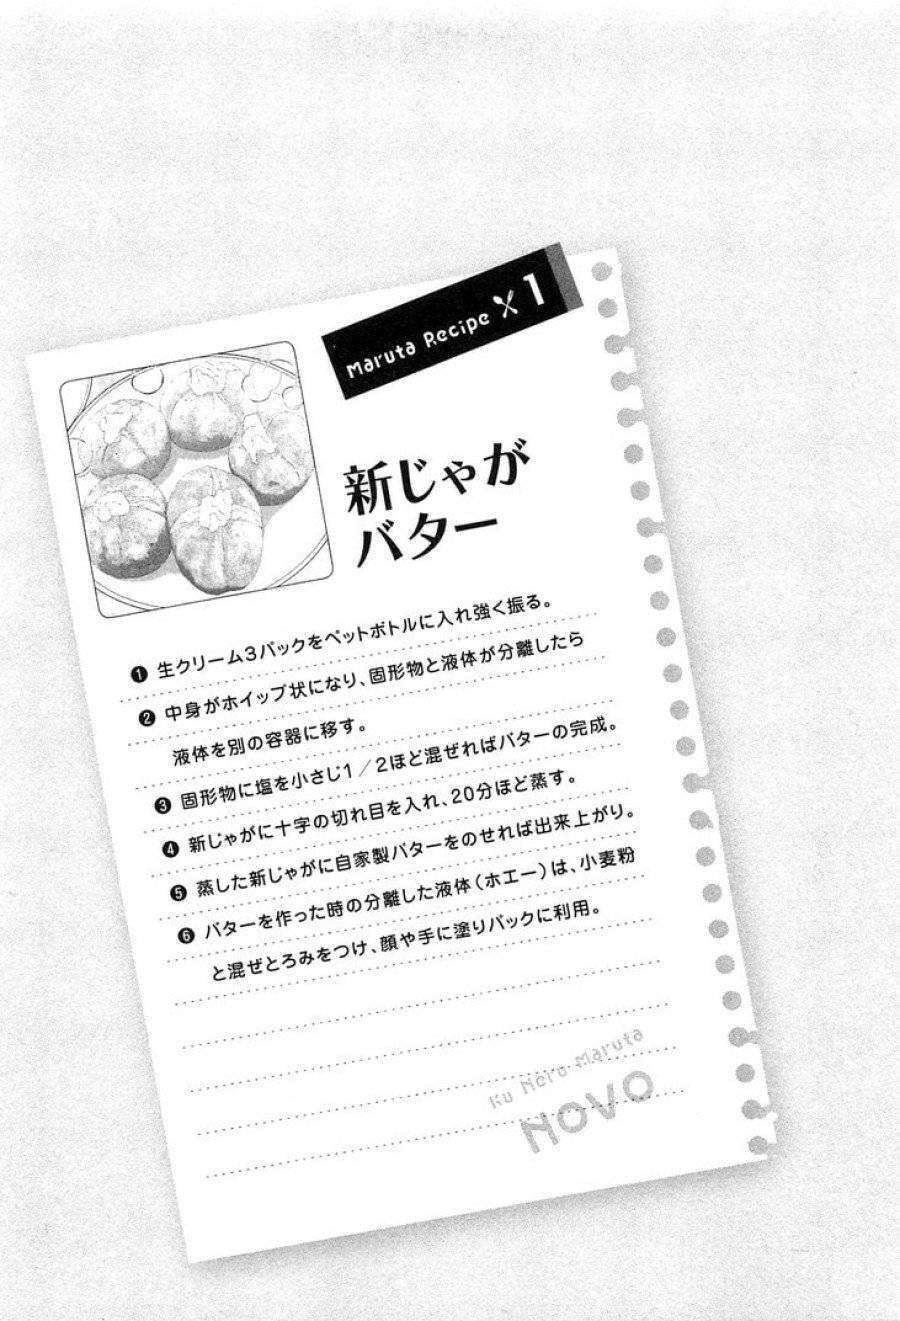 Maruta Recipe 1
新じゃが
バター
❶ 生クリーム3パックをペットボトルに入れ強く振る。
❷ 中身がホイップ状になり、固形物と液体が分離したら
液体を別の容器に移す。
❸ 固形物に塩を小さじ1／2ほど混ぜればバターの完成。
❹ 新じゃがに十字の切れ目を入れ、20分ほど蒸す。
❺ 蒸した新じゃがに自家製バターをのせれば出来上がり。
❻ バターを作った時の分離した液体（ホエー）は、小麦粉
と混ぜとろみをつけ、顔や手に塗りパックに利用。
Ku Neru Maruta
NOVO